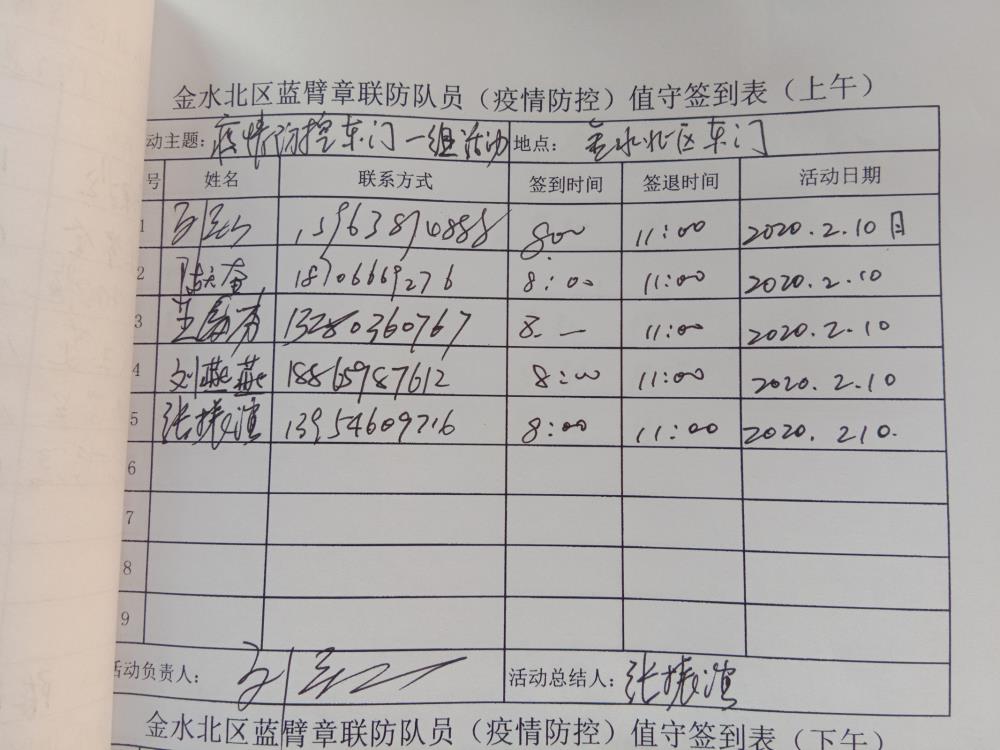 金水北区蓝臂章联防队员（疫情防控）值守签到表（上午）
动主题：疫情防控东门一组活动 地点：金水北区东门
号 姓名 联系方式 签到时间 签退时间 活动日期
1 13963890888 8:00 11:00 2020.2.10日
2 18706669276 8:00 11:00 2020.2.10
3 13280360767 8. — 11:00 2020.2.10
4 刘燕燕 18865987612 8:00 11:00 2020.2.10
5 张振滨 13954609716 8:00 11:00 2020.210.
6
7
8
9
活动负责人： 活动总结人：张振滨
金水北区蓝臂章联防队员（疫情防控）值守签到表（下午）